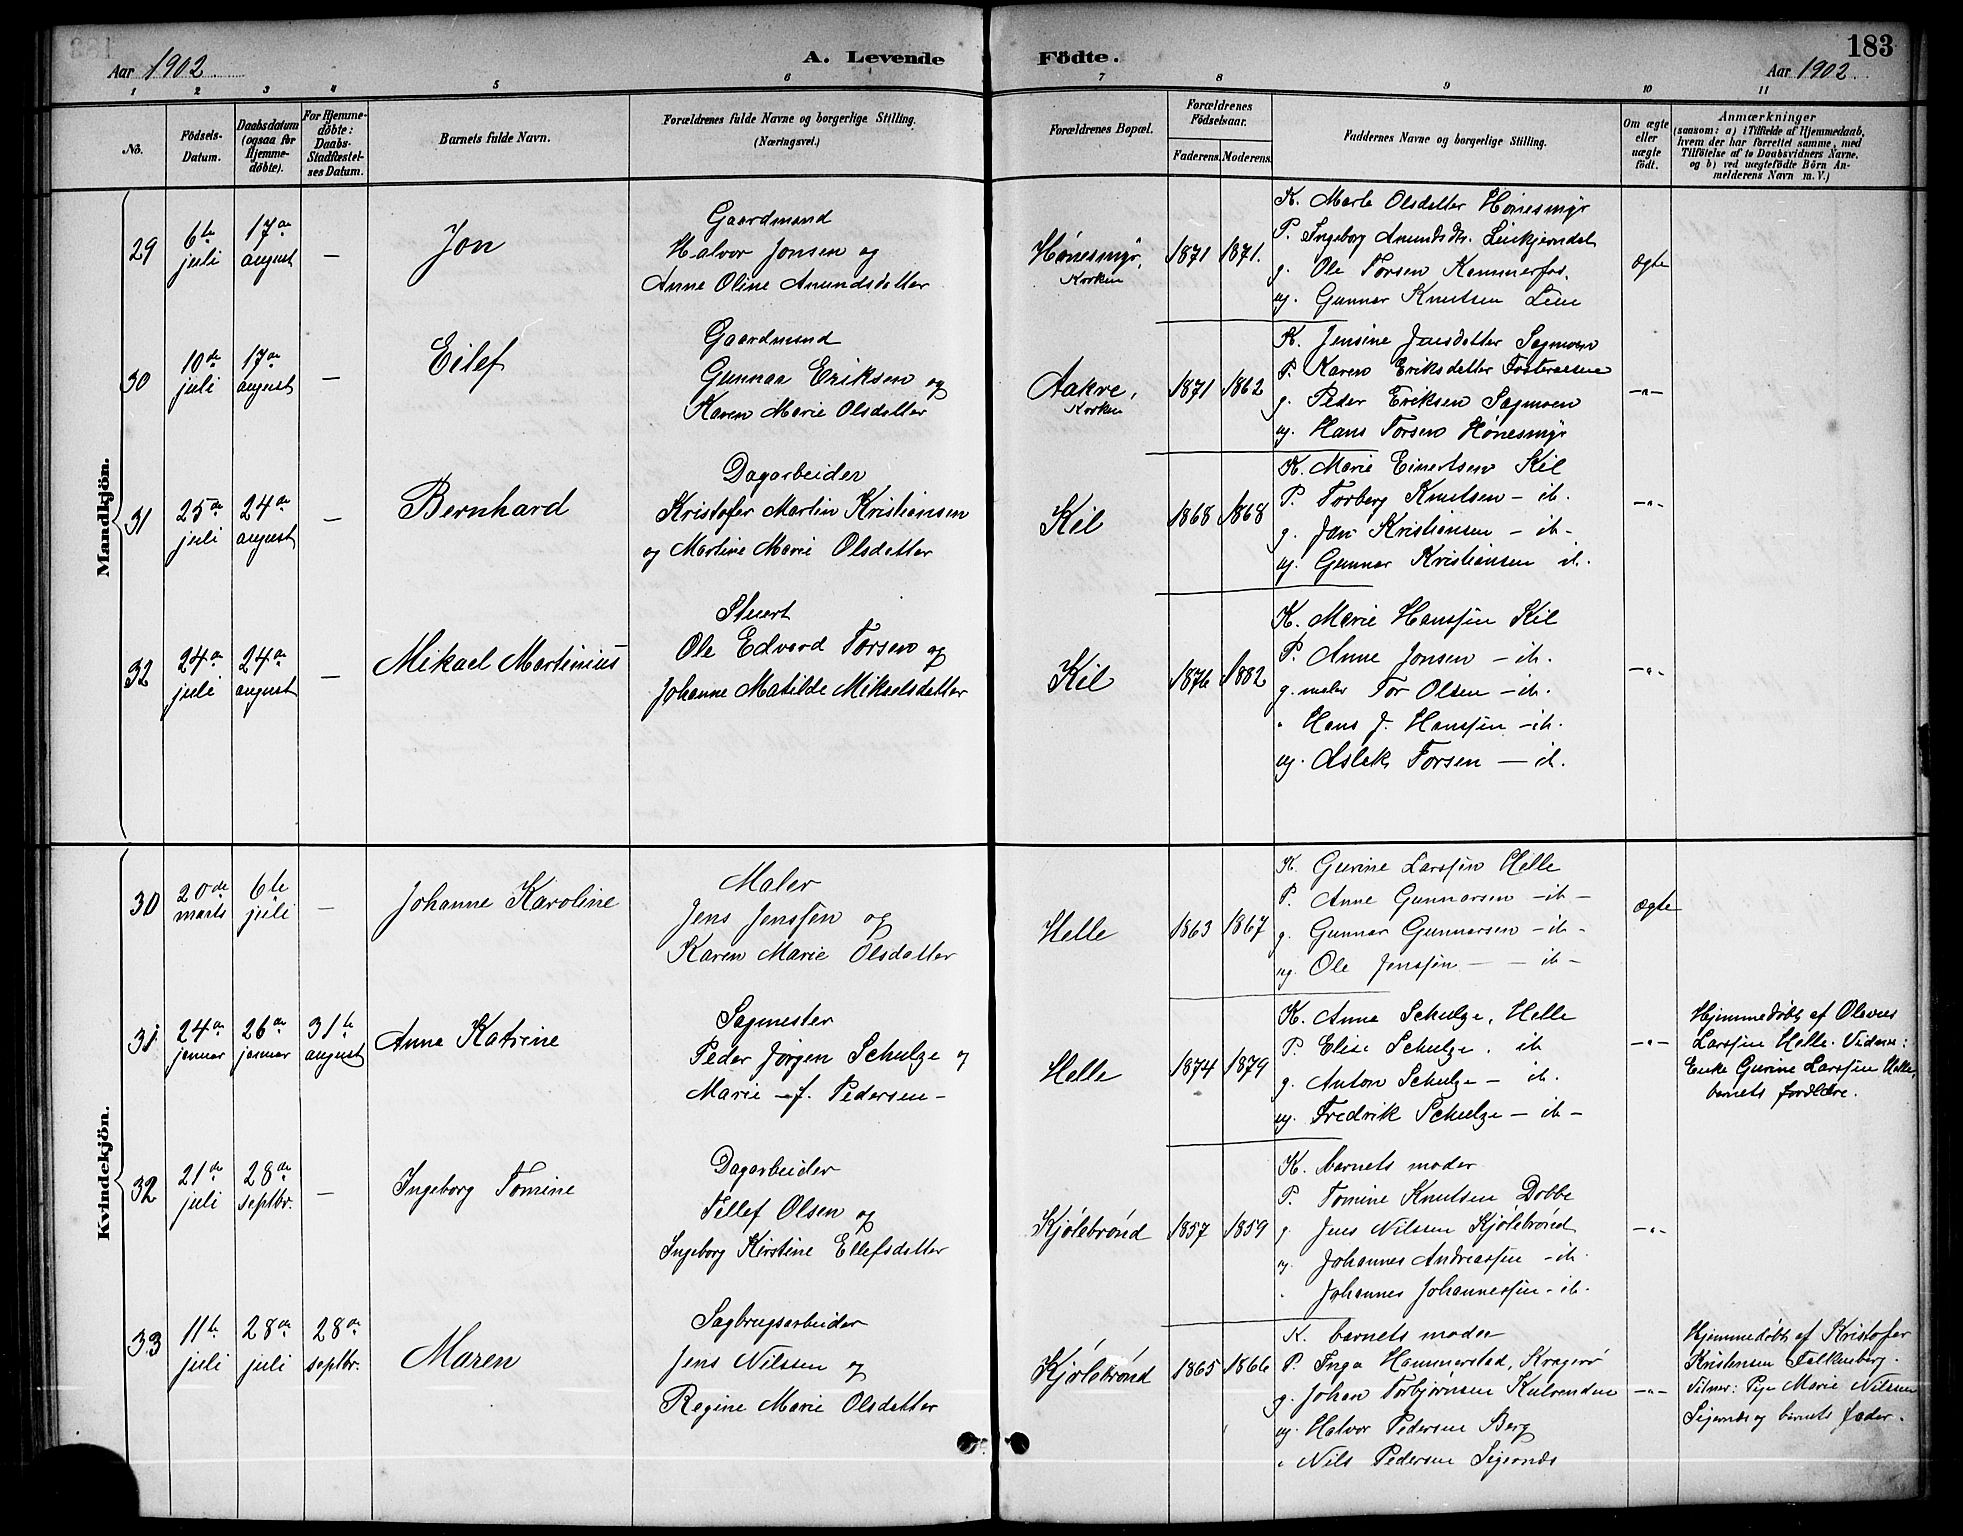 Aar 1902
A. Levende Födte.
183
Aar 1902
1 2 3 4 5 6 7 8 9 10 11
No.
Födsels-Datum.
Daabsdatum (ogsaa for Hjemmedöbte).
For Hjemmedöbte: Daabs-Stadfæstelses Datum.
Barnets fulde Navn.
Forældrenes fulde Navne og borgerlige Stilling. (Næringsvei.)
Forældrenes Bopæl.
Forældrenes Födselsaar.
Faderens. Moderens.
Faddernes Navne og borgerlige Stilling.
Om ægte eller uægte födt.
Anmærkninger (saasom: a) i Tilfælde af Hjemmedaab, hvem der har forrettet samme, med Tilföielse af to Daabsvidners Navne, og b) ved uægtefödte Börn Anmelderens Navn m. V.)
Mandkjön.
29
6te juli
17de august
—
Jon
Gaardmand
Halvor Jonsen og
Anne Oline Anundsdatter
Hønesmyr,
Korken
1871 1871.
K. Marte Olsdatter Hønesmyr
P. Ingeborg Anundsdtr.
g. Ole Torsen Kammerfos.
ug. Gunnar Knutsen Lien
Ægte
30
10de juli
17de august
—
Eilef
Gaardmand
Gunnar Eriksen og
Karen Marie Olsdatter
Aakre,
Korken
1871 1862
K. Jensine Jansdatter Sagmoen
P. Karen Eriksdatter
g. Peder Eriksen Sagmoen
ug. Hans Torsen Hønesmyr
—"—
31
25de juli
24de august
—
Bernhard
Dagarbeider
Kristofer Martin Kristiansen
og Martine Marie Olsdatter
Kil
1868 1868
K. Marie Einertsen Kil
P. Torberg Knutsen — ib.
g. Jan Kristiansen — ib —
ug. Gunnar Kristiansen ib.
—"—
32
24de juli
24de august
—
Mikael Martinius
Stuert
Ole Edvard Torsen og
Johanne Matilde Mikaelsdatter
Kil
1876 1882
K. Marie Hanssen Kil
P. Anne Jonsen — ib.
g. maler Tor Olsen — ib.
" Hans J. Hanssen — ib.
ug. Aslak Torsen — ib.
—"—
Kvindekjön.
30
20de marts
6te juli
—
Johanne Karoline
Maler
Jens Jenssen og
Karen Marie Olsdatter
Helle
1863 1867
K. Gurine Larssen Helle
P. Anne Gunnarsen — ib —
g. Gunnar Gunnarsen — ib —
ug. Ole Jenssen — — ib —
Ægte
31
24de januar
26de januar
31te august
Anna Katrine
Sagmester
Peder Jörgen Schulze og
Marie — f. Pedersen —
Helle
1874 1879
K. Anna Schulze, Helle
P. Elise Schulze. ib
g. Anton Schulze — ib.
ug. Fredrik Schulze — ib —
—"—
Hjemmedøbt af Olaves
Larssen Helle. Vidner:
Enke Gurine Larssen Helle,
barnets forældre.
32
21de juli
28de septbr.
—
Ingeborg Tomine
Dagarbeider
Tellef Olsen og
Ingeborg Kirstine Ellefsdatter
Kjølebrønd
1857 1859
K. barnets moder
P. Tomine Knutsen Dobbe
g. Jens Nilssen Kjølebrønd
ug. Johannes Andreassen — ib.
" Johannes Johannessen — ib.
—"—
33
11te juli
28de juli
28de septbr.
Maren
Sagbrugsarbeider
Jens Nilssen og
Regine Marie Olsdatter
Kjølebrønd
1865 1866
K. barnets moder
P. Inga Hammerstad, Kragerø
g. Johan Torbjørnsen
ug. Halvor Pedersen Berg
" Nils Pedersen
—"—
Hjemmedøbt af Kristofer
Kristensen Falkenberg.
Vitner: Pige Marie Nilssen
og barnets fader.